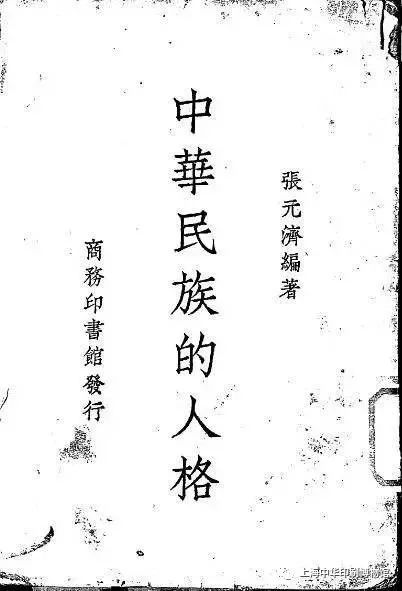 張元濟編著
中華民族的人格
商務印書館發行
上海中华印刷博物馆